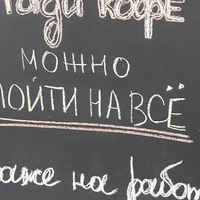 ради кофе
можно
пойти на всё
даже на работ